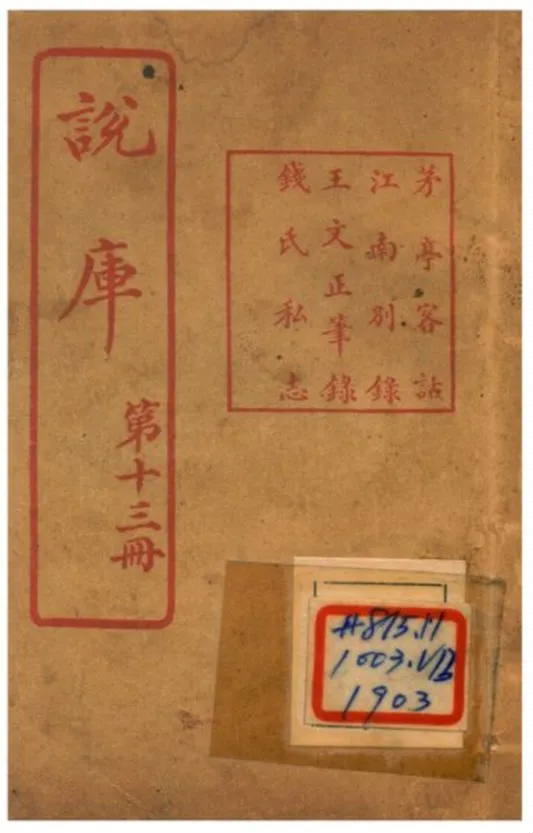 茅亭客話
江南別錄
王文正筆錄
錢氏私志
說庫
第十三冊
1903